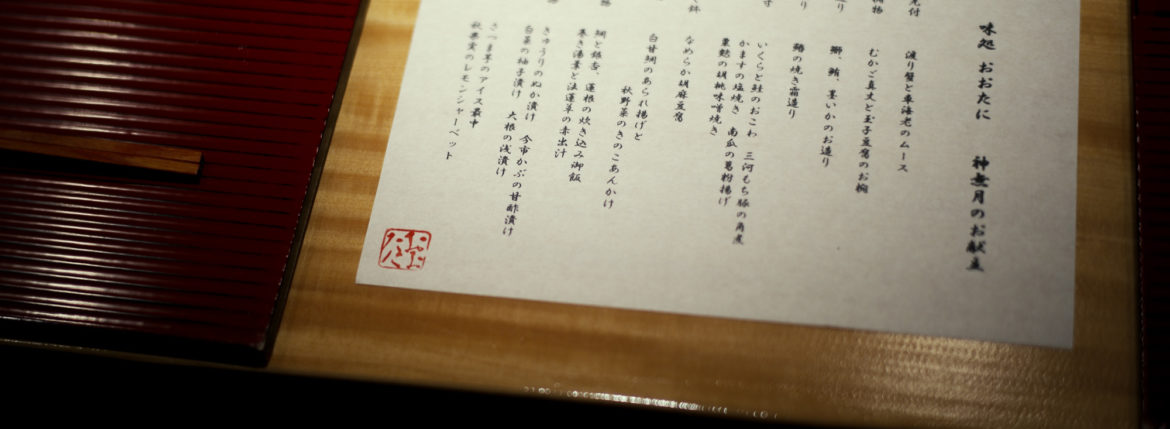 味処 おおたに 神無月のお献立
先付
渡り蟹と車海老のムース
むかご真丈と玉子豆腐のお椀
鰤、鮪、墨いかのお造り
鰆の焼き霜造り
いくらと鮭のおこわ 三河もち豚の角煮
かますの塩焼き 南瓜の葛粉揚げ
粟麩の胡桃味噌焼き
なめらか胡麻豆腐
白甘鯛のあられ揚げと
秋野菜のきのこあんかけ
鯛と銀杏、蓮根の炊き込み御飯
巻き湯葉と法蓮草の赤出汁
きゅうりのぬか漬け 今市かぶの甘酢漬け
白菜の柚子漬け 大根の浅漬け
さつま芋のアイス最中
秋果実のレモンシャーベット